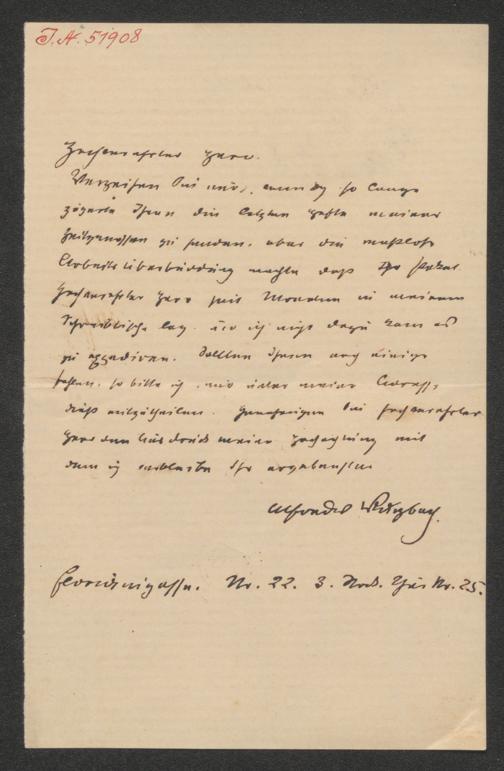 I.N. 51908
Hochverehrter Herr.
Verzeihen Sie mir, wenn ich so lange
zögerte Ihnen die letzten Hefte meiner
Zeitgenossen zu senden. aber die maßlose
Arbeitsüberbürdung machte daß Ihr Paket
Hochverehrter Herr seit Monaten in meinem
Schreibtische lag. und ich nicht dazu kam es
zu expediren. Sollten Ihnen noch einige
fehlen. so bitte ich, mir unter meiner Adresse
dieß mitzutheilen. Genehmigen Sie hochverehrter
Herr den Ausdruck meiner Hochachtung mit
dem ich verbleibe Ihr ergebenster
Alfred Wurzbach.
Florianigasse. Nr. 22. 3. Stock. Thür Nr. 25.